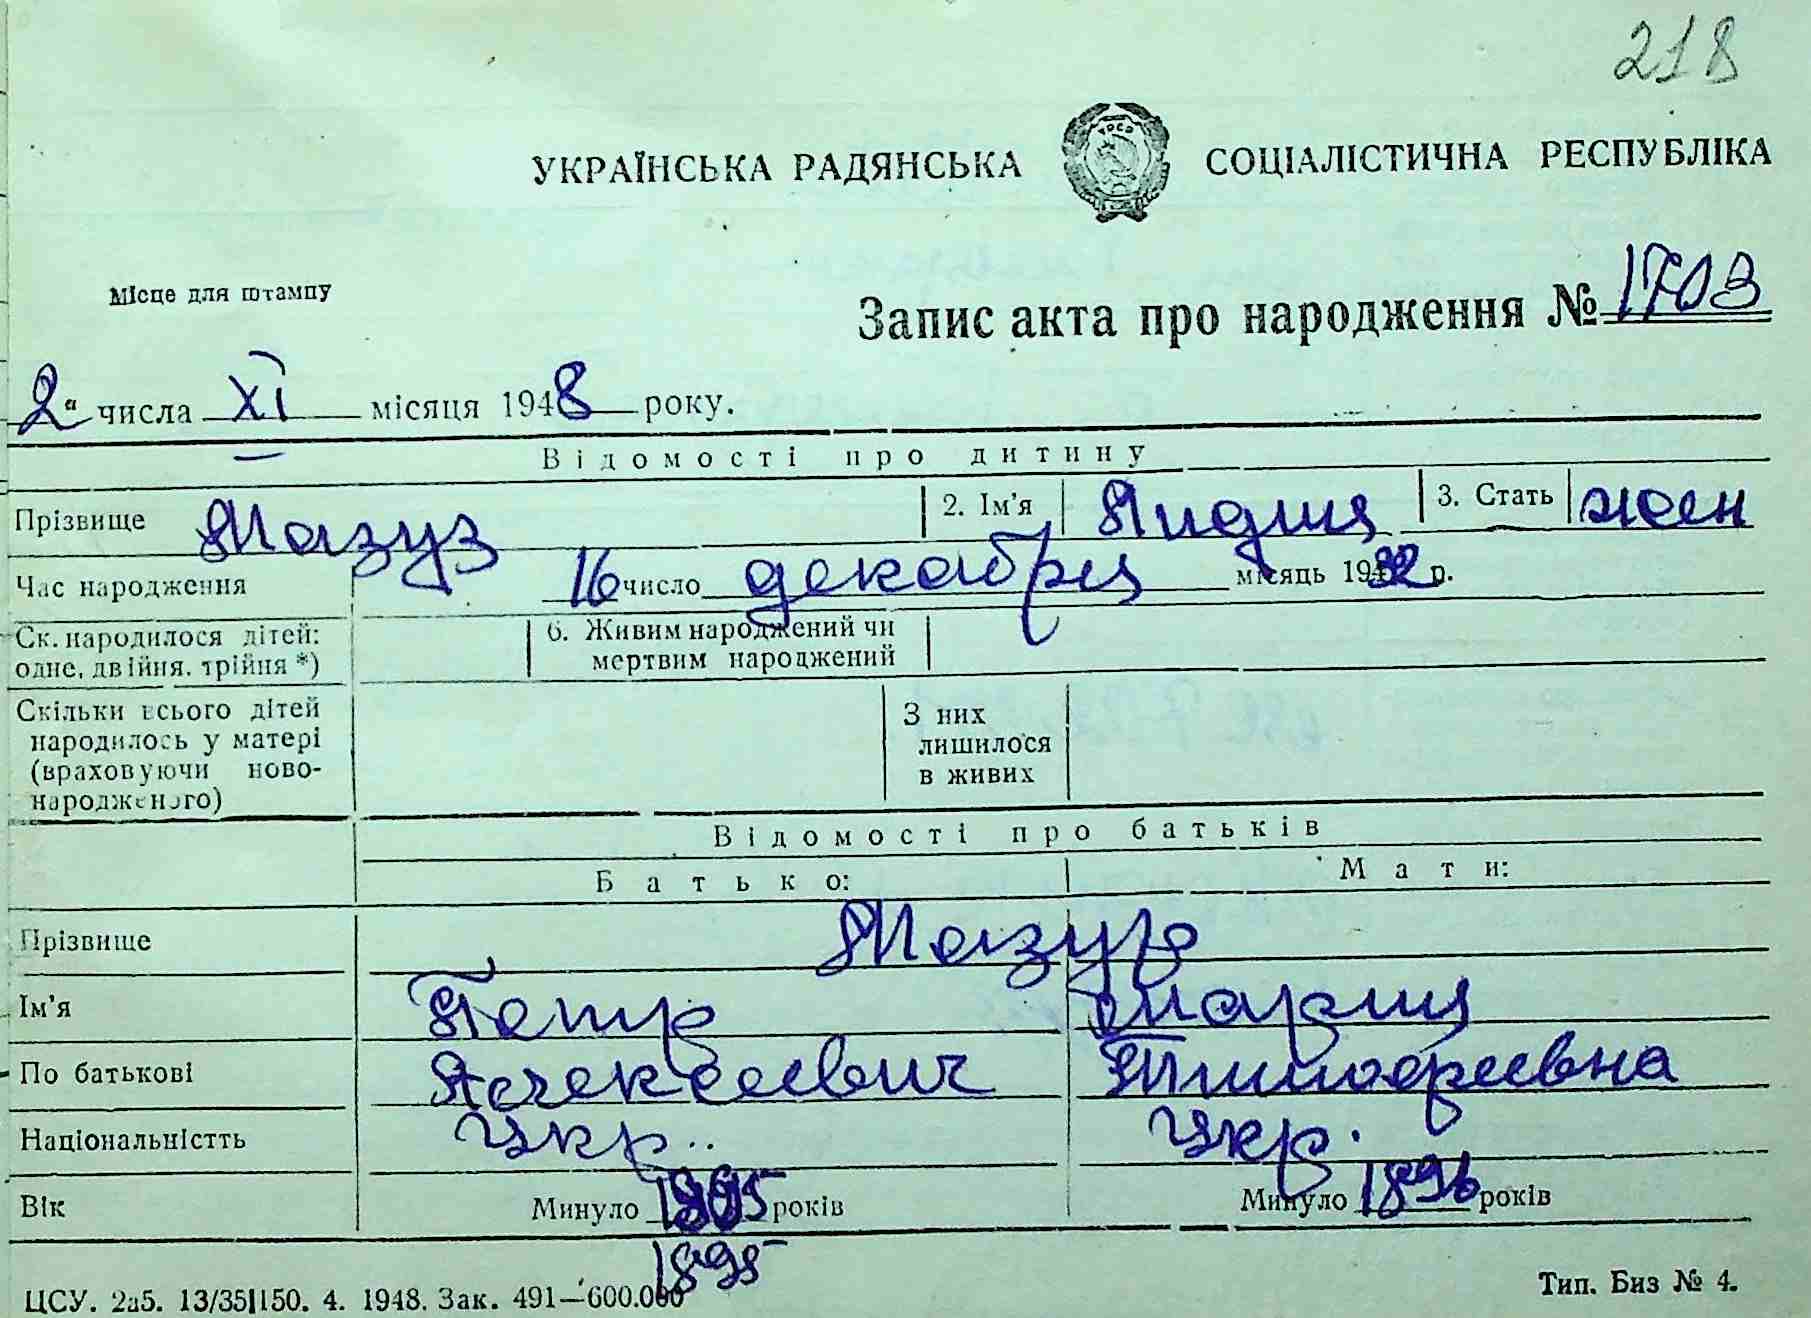 218
УКРАЇНСЬКА РАДЯНСЬКА СОЦІАЛІСТИЧНА РЕСПУБЛІКА
Місце для штампу
Запис акта про народження № 1703
2 числа XI місяця 1948 року.
Відомості про дитину
Прізвище Мазур 2. Ім'я Лидия 3. Стать жен
Час народження 16 число декабря місяць 1932 р.
Ск. народилося дітей: 6. Живим народжений чи
одне, двійня, трійня *) мертвим народжений
Скільки всього дітей З них
народилось у матері лишилося
(враховуючи ново- в живих
народженого)
Відомості про батьків
Батько: Мати:
Прізвище Мазур
Ім'я Петр Мария
По батькові Алексеевич Тимофеевна
Національністть Укр. Укр.
Вік Минуло років Минуло 1896 років
1895
ЦСУ. 2а5. 13/35 150. 4. 1948. Зак. 491—600.000 Тип. Биз № 4.